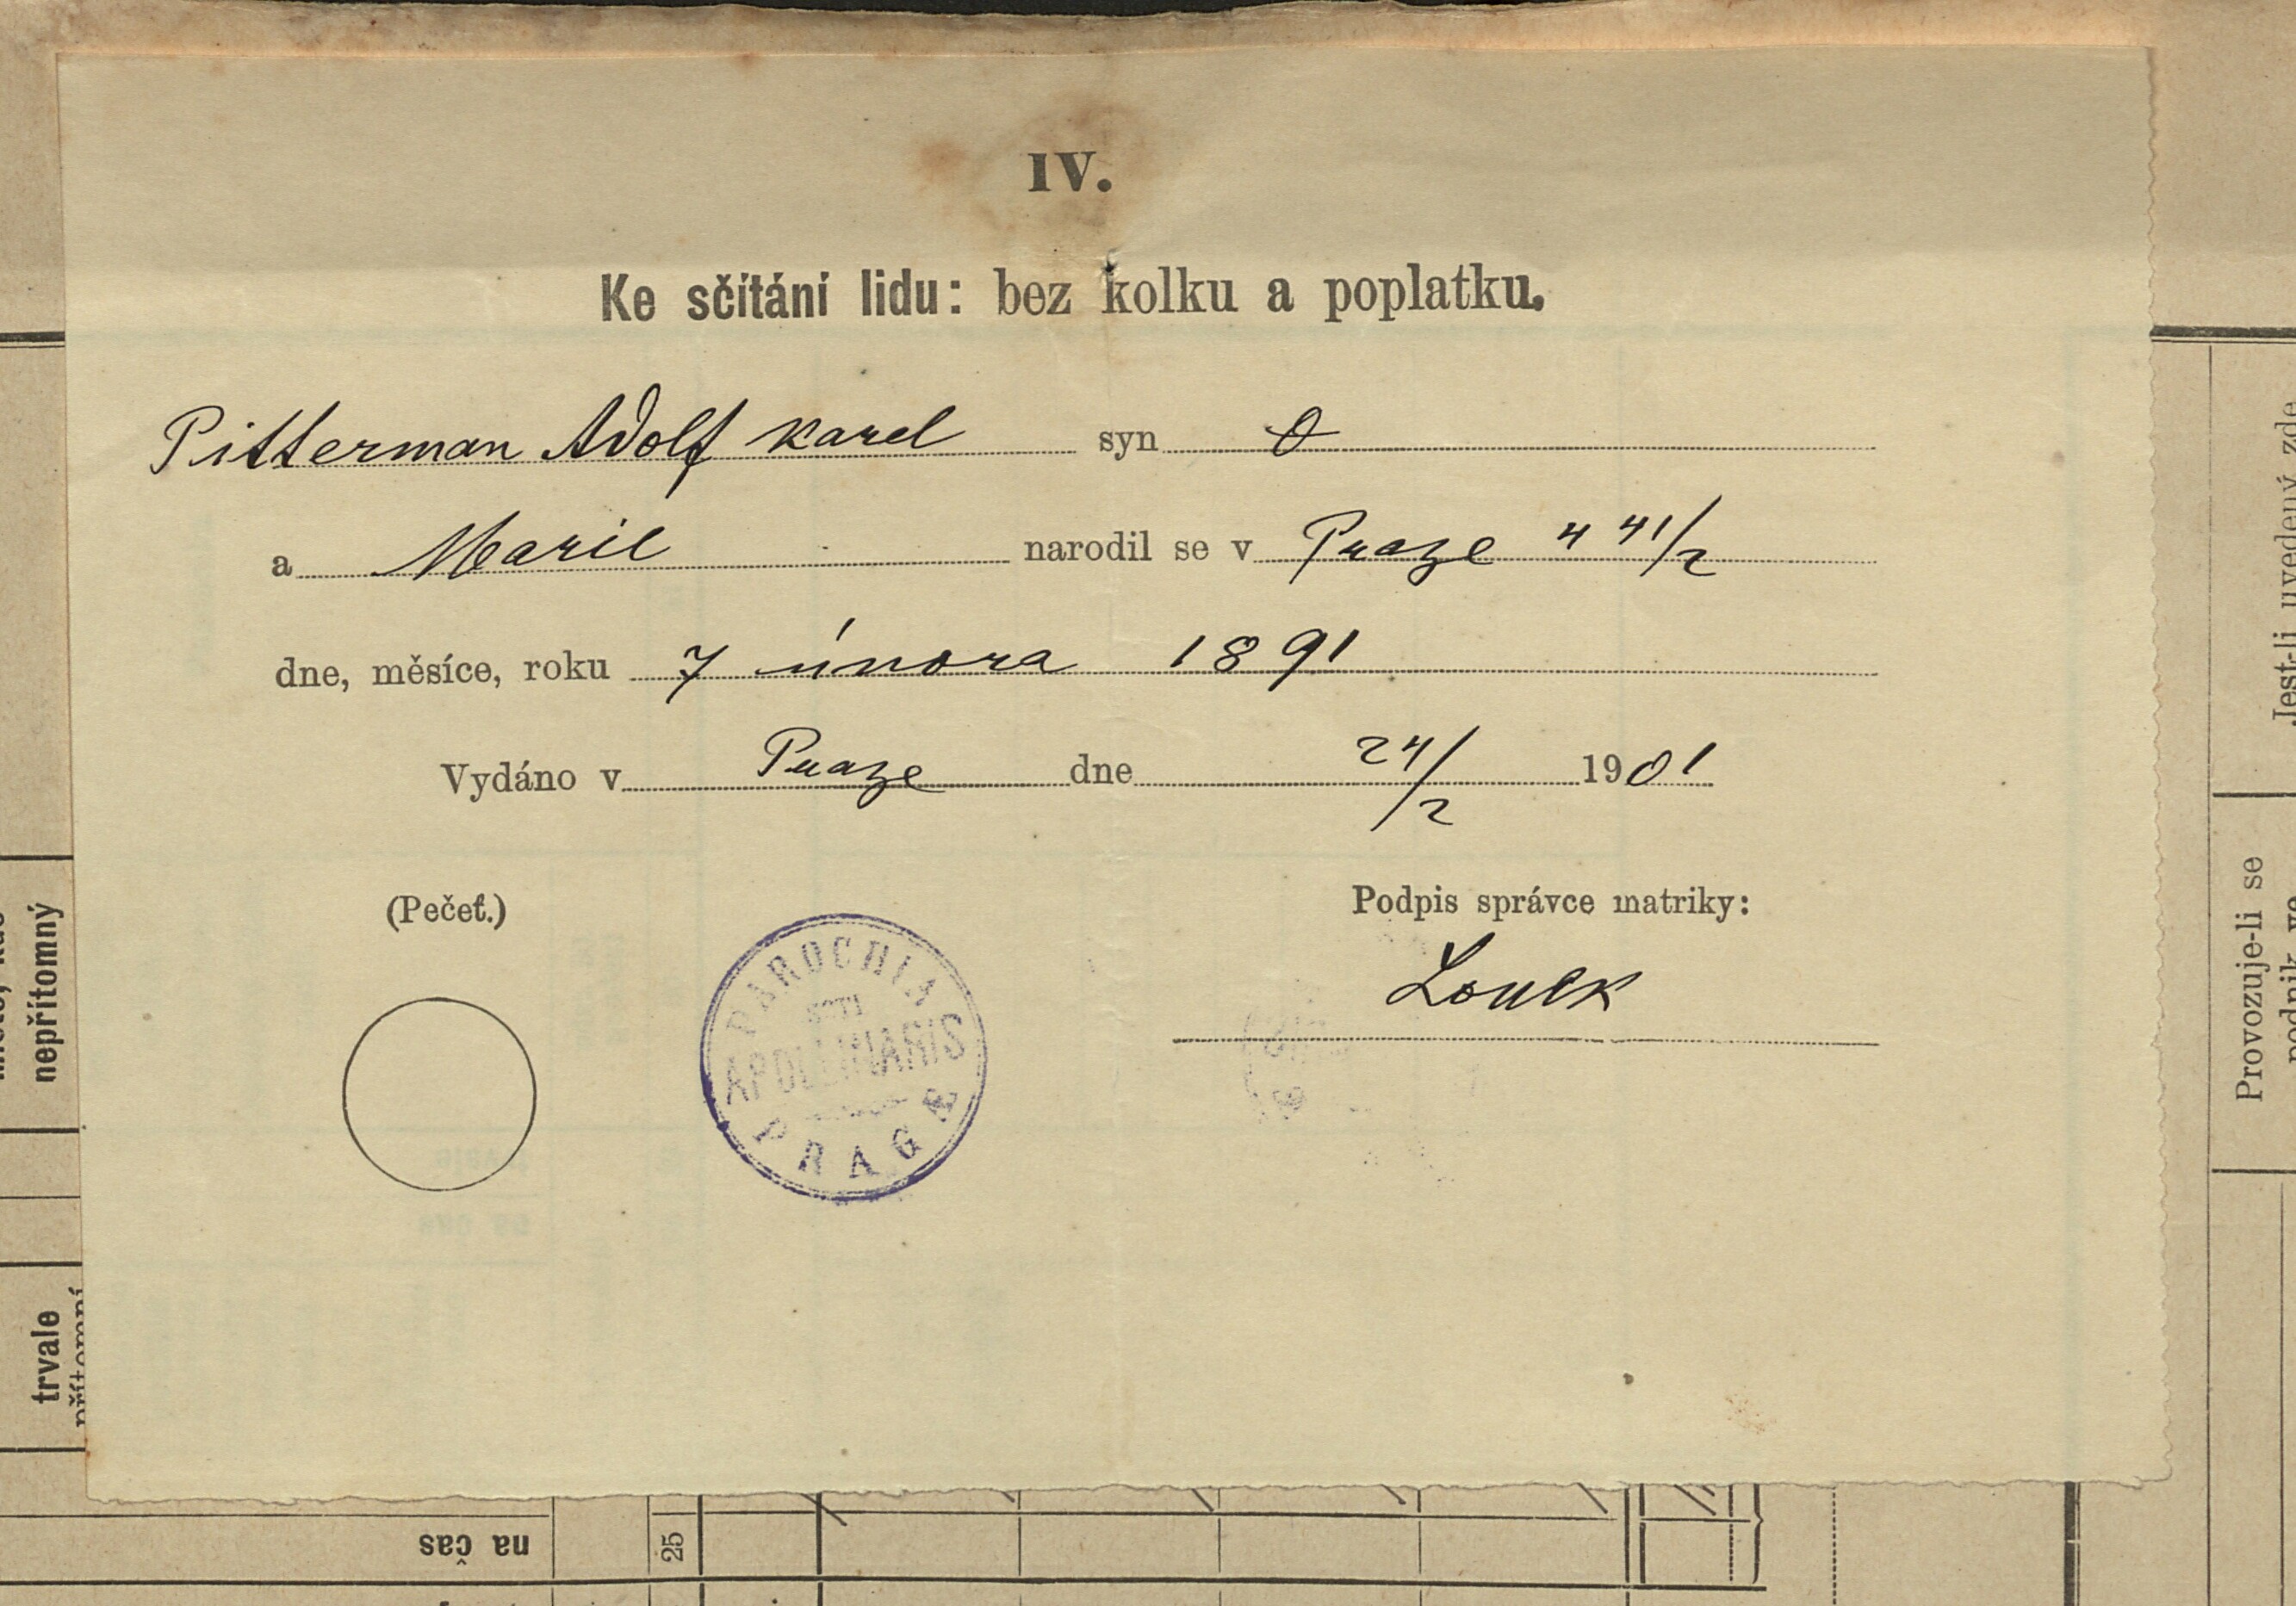 IV.
Ke sčítání lidu: bez kolku a poplatku.
Pitterman Adolf Karel syn 0
a Marie narodil se v Praze 441/2
dne, měsíce, roku 7 února 1891
Vydáno v Praze dne 24/2 1901
(Pečeť.)
Podpis správce matriky:
PAROCHIA
SCTI
APOLLINARIS
PRAGÆ
Jest-li uvedený zde
Provozuje-li se
podnik ve
nepřítomný
trvale
přítomní
na čas
25